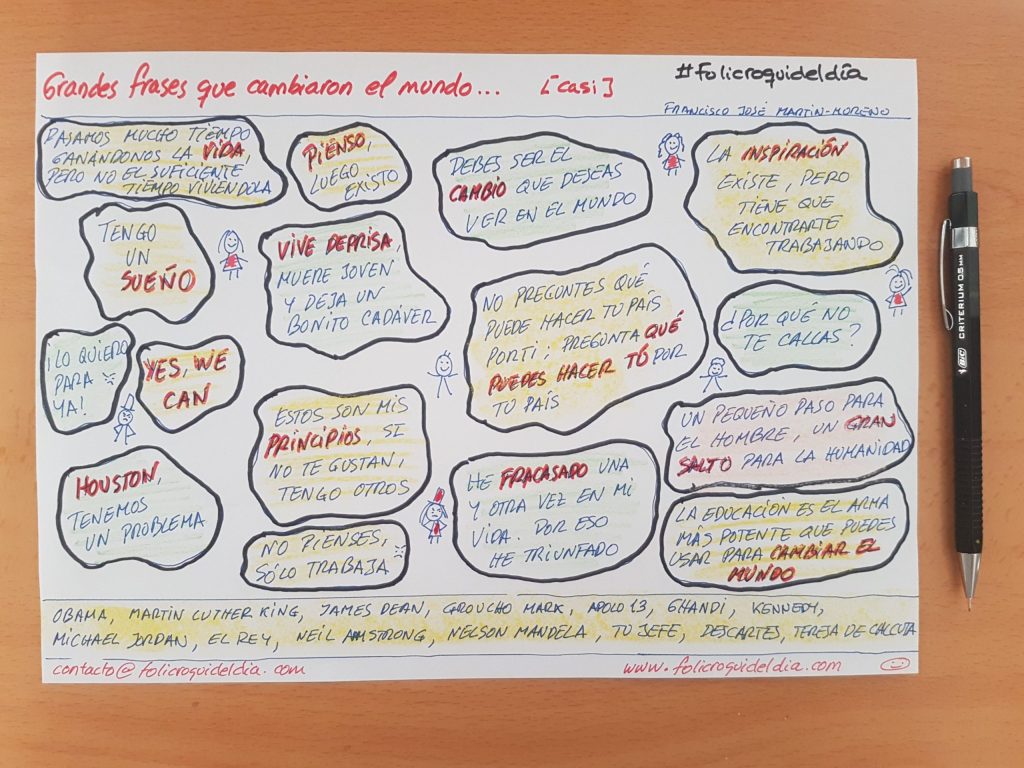 Grandes frases que cambiaron el mundo... [casi]
#folicroquideldía
FRANCISCO JOSÉ MARTIN-MORENO
PASAMOS MUCHO TIEMPO
GANÁNDONOS LA VIDA,
PERO NO EL SUFICIENTE
TIEMPO VIVIÉNDOLA
PIENSO,
LUEGO
EXISTO
DEBES SER EL
CAMBIO QUE DESEAS
VER EN EL MUNDO
LA INSPIRACIÓN
EXISTE, PERO
TIENE QUE
ENCONTRARTE
TRABAJANDO
TENGO
UN
SUEÑO
VIVE DEPRISA,
MUERE JOVEN
Y DEJA UN
BONITO CADÁVER
NO PREGUNTES QUÉ
PUEDE HACER TU PAÍS
POR TI, PREGUNTA QUÉ
PUEDES HACER TÚ POR
TU PAÍS
¿POR QUÉ NO
TE CALLAS?
¡LO QUIERO
PARA
YA!
YES, WE
CAN
ESTOS SON MIS
PRINCIPIOS, SI
NO TE GUSTAN,
TENGO OTROS
UN PEQUEÑO PASO PARA
EL HOMBRE, UN GRAN
SALTO PARA LA HUMANIDAD
HOUSTON,
TENEMOS
UN PROBLEMA
HE FRACASADO UNA
Y OTRA VEZ EN MI
VIDA. POR ESO
HE TRIUNFADO
LA EDUCACIÓN ES EL ARMA
MÁS POTENTE QUE PUEDES
USAR PARA CAMBIAR EL
MUNDO
NO PIENSES,
SÓLO TRABAJA
OBAMA, MARTIN LUTHER KING, JAMES DEAN, GROUCHO MARK, APOLO 13, GHANDI, KENNEDY,
MICHAEL JORDAN, EL REY, NEIL AMSTRONG, NELSON MANDELA, TU JEFE, DESCARTES, TERESA DE CALCUTA
contacto@folicroquideldia.com
www.folicroquideldia.com
BIC CRITERIUM 0,5 MM